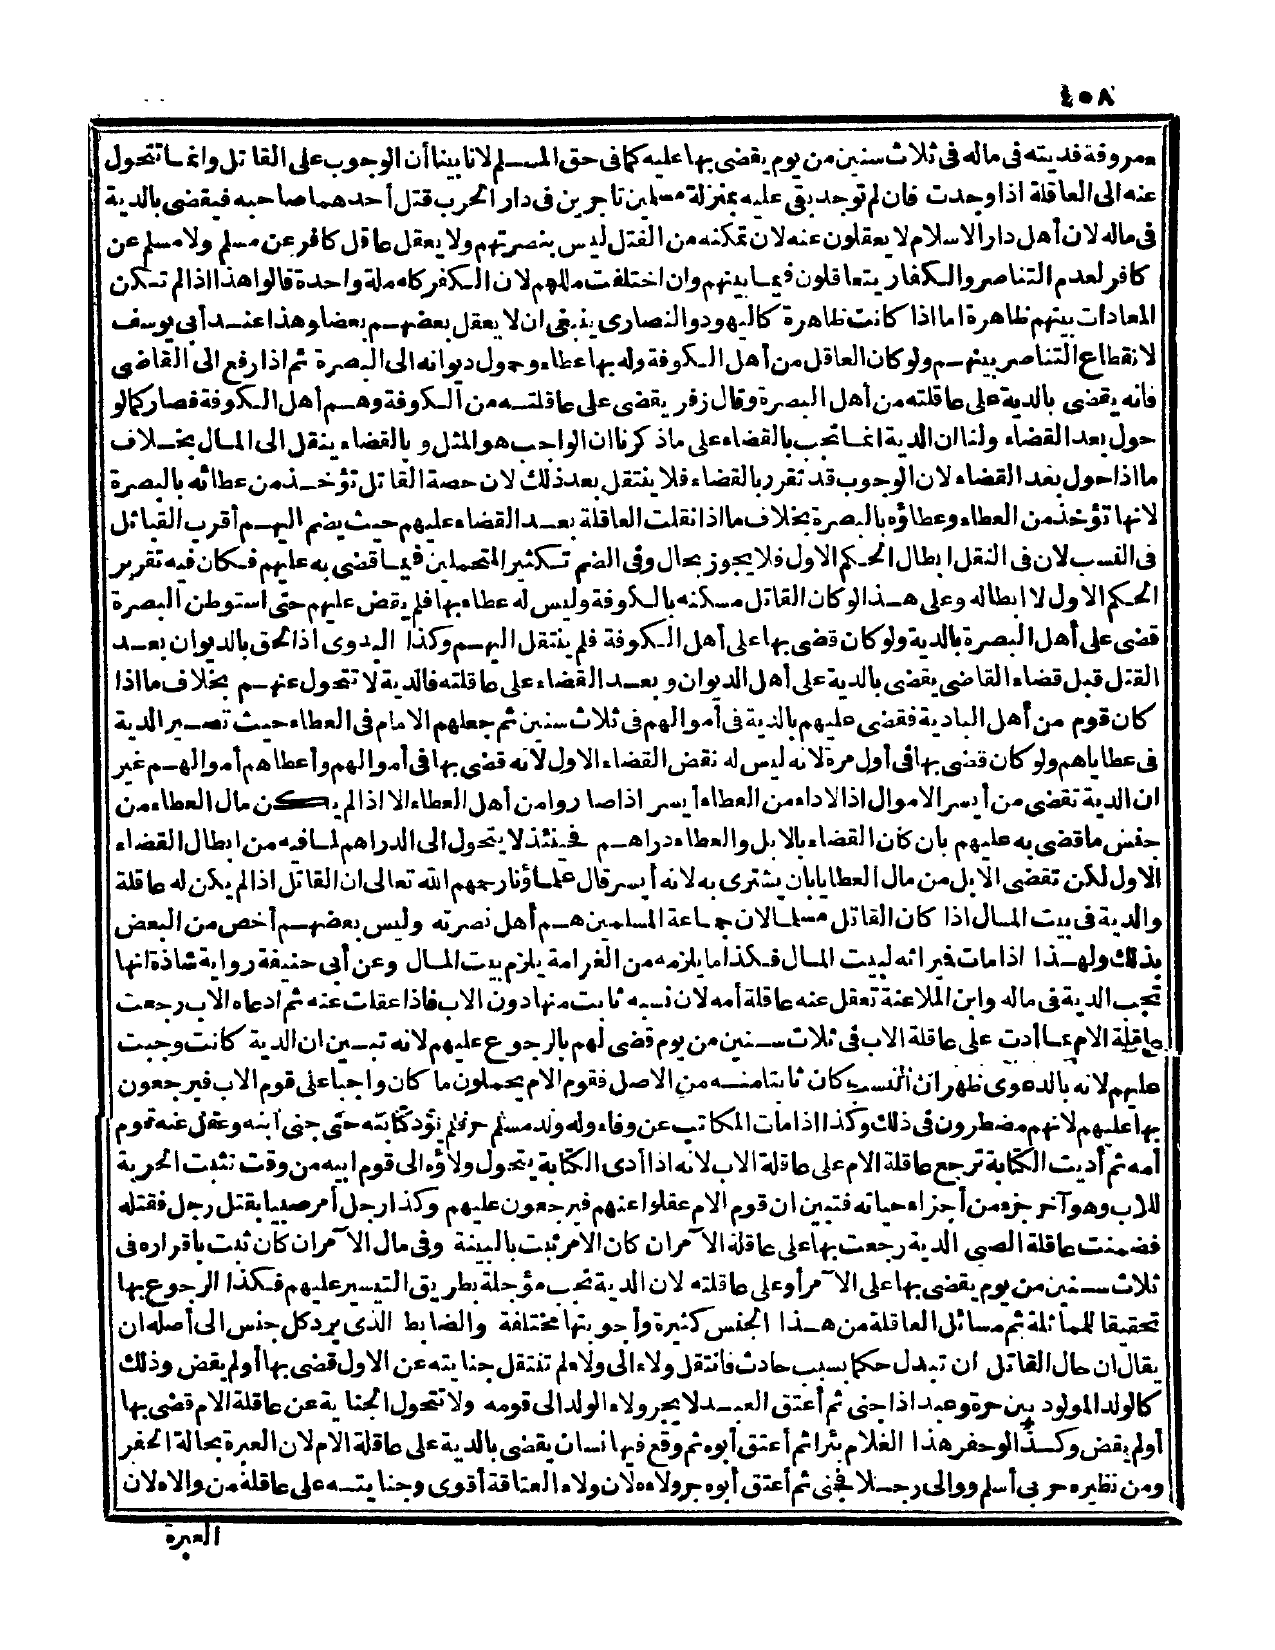 ٤٠٨
معروفة فديته فى ماله فى ثلاث سنين من يوم يقضى بها عليه كما فى حق المسلم لانا بينا أن الوجوب على القاتل وانما تتحول
عنه الى العاقلة اذا وجدت فان لم توجد بقى عليه بمنزلة مسلمين تاجرين فى دار الحرب قتل أحدهما صاحبه فيقضى بالدية
فى ماله لان أهل دار الاسلام لا يعقلون عنه لان تمكنه من القتل ليس بنصرتهم ولا يعقل عاقل كافر عن مسلم ولا مسلم عن
كافر لعدم التناصر والكفار يتعاقلون فيما بينهم وان اختلفت مللهم لان الكفر كله ملة واحدة قالوا هذا اذا لم تكن
المعادات بينهم ظاهرة اما اذا كانت ظاهرة كاليهود والنصارى ينبغى ان لا يعقل بعضهم بعضا وهذا عند أبى يوسف
لانقطاع التناصر بينهم ولو كان العاقل من أهل الكوفة وله بها عطاء وحول ديوانه الى البصرة ثم اذا رفع الى القاضى
فانه يقضى بالدية على عاقلته من أهل البصرة وقال زفر يقضى على عاقلته من الكوفة وهم أهل الكوفة فصار كمالو
حول بعد القضاء ولنا ان الدية انما تجب بالقضاء على ماذكرنا ان الواجب هو المثل و بالقضاء ينقل الى المال بخلاف
ما اذا حول بعد القضاء لان الوجوب قد تقرر بالقضاء فلا ينتقل بعد ذلك لان حصة القاتل تؤخذ من عطائه بالبصرة
لانها تؤخذ من العطاء وعطاؤه بالبصرة بخلاف ما اذا نقلت العاقلة بعد القضاء عليهم حيث يضم اليهم أقرب القبائل
فى النسب لان فى النقل ابطال الحكم الاول فلا يجوز بحال وفى الضم تكثير المتحملين فيما قضى به عليهم فكان فيه تقرير
الحكم الاول لا ابطاله وعلى هذا لو كان القاتل مسكنه بالكوفة وليس له عطاء بها فلم يقض عليهم حتى استوطن البصرة
قضى على أهل البصرة بالدية ولو كان قضى بها على أهل الكوفة فلم ينتقل اليهم وكذا البدوى اذا لحق بالديوان بعد
القتل قبل قضاء القاضى يقضى بالدية على أهل الديوان وبعد القضاء على عاقلته فالدية لا تتحول عنهم بخلاف ما اذا
كان قوم من أهل البادية فقضى عليهم بالدية فى أموالهم فى ثلاث سنين ثم جعلهم الامام فى العطاء حيث تصير الدية
فى عطاياهم ولو كان قضى بها فى أول مرة لانه ليس له نقض القضاء الاول لانه قضى بها فى أموالهم وأعطاهم أموالهم غير
ان الدية تقضى من أيسر الاموال اذ الاداء من العطاء أيسر اذا صاروا من أهل العطاء الا اذا لم يكن مال العطاء من
جنس ما قضى به عليهم بان كان القضاء بالابل والعطاء دراهم فحينئذ لا يتحول الى الدراهم لما فيه من ابطال القضاء
الاول لكن تقضى الابل من مال العطايا بان يشترى به لانه أيسر قال علماؤنا رحمهم الله تعالى ان القاتل اذا لم يكن له عاقلة
والدية فى بيت المال اذا كان القاتل مسلما لان جماعة المسلمين هم أهل نصرته وليس بعضهم أخص من البعض
بذلك ولهذا اذا مات فيرائه لبيت المال فكذا ما يلزمه من الغرامة يلزم بيت المال وعن أبى حنيفة رواية شاذة انها
تجب الدية فى ماله وابن الملاعنة تعقل عنه عاقلة أمه لان نسبه ثابت منها دون الاب فاذا عقلت عنه ثم ادعاه الاب رجعت
عاقلة الام بما أدت على عاقلة الاب فى ثلاث سنين من يوم قضى لهم بالرجوع عليهم لانه تبين ان الدية كانت وجبت
عليهم لانه بالدعوى ظهر ان النسب كان ثابتا منه من الاصل فقوم الام يحملون ما كان واجبا على قوم الاب فيرجعون
بها عليهم لانهم مضطرون فى ذلك وكذا اذا مات المكاتب عن وفاء وله ولد مسلم حر فلم تؤد كتابته حتى جنى ابنه وعقل عنه قوم
أمه ثم أديت الكتابة ترجع عاقلة الام على عاقلة الاب لانه اذا أدى الكتابة يتحول ولاؤه الى قوم ابيه من وقت تثبت الحرية
للاب وهو آخر جزء من أجزاء حياته فتبين ان قوم الام عقلوا عنهم فيرجعون عليهم وكذا رجل أمر صبيا بقتل رجل فقتله
فضمنت عاقلة الصبى الدية رجعت بها على عاقلة الآمر ان كان الامر ثبت بالبينة وفى مال الآمر ان كان ثبت باقراره فى
ثلاث سنين من يوم يقضى بها على الآمر أو على عاقلته لان الدية تجب مؤجلة بطريق التيسير عليهم فكذا الرجوع بها
تحقيقا للمماثلة ثم مسائل العاقلة من هذا الجنس كثيرة وأجوبتها مختلفة والضابط الذى يرد كل جنس الى أصله ان
يقال ان حال القاتل ان تبدل حكما بسبب حادث فانتقل ولاءه الى ولاء لم تنتقل جنايته عن الاول قضى بها أولم يقض وذلك
كالولد المولود بين حرة وعبد اذا جنى ثم أعتق العبد لا يجر ولاء الولد الى قومه ولا تتحول الجناية عن عاقلة الام قضى بها
أولم يقض وكذا لو حفر هذا الغلام بئرا ثم أعتق أبوه ثم وقع فيها انسان يقضى بالدية على عاقلة الام لان العبرة بحالة الحفر
ومن نظيره حربى أسلم ووالى رجلا فجنى ثم أعتق أبوه جر ولاءه لان ولاء العتاقة أقوى وجنايته على عاقلة من والاه لان
العبرة